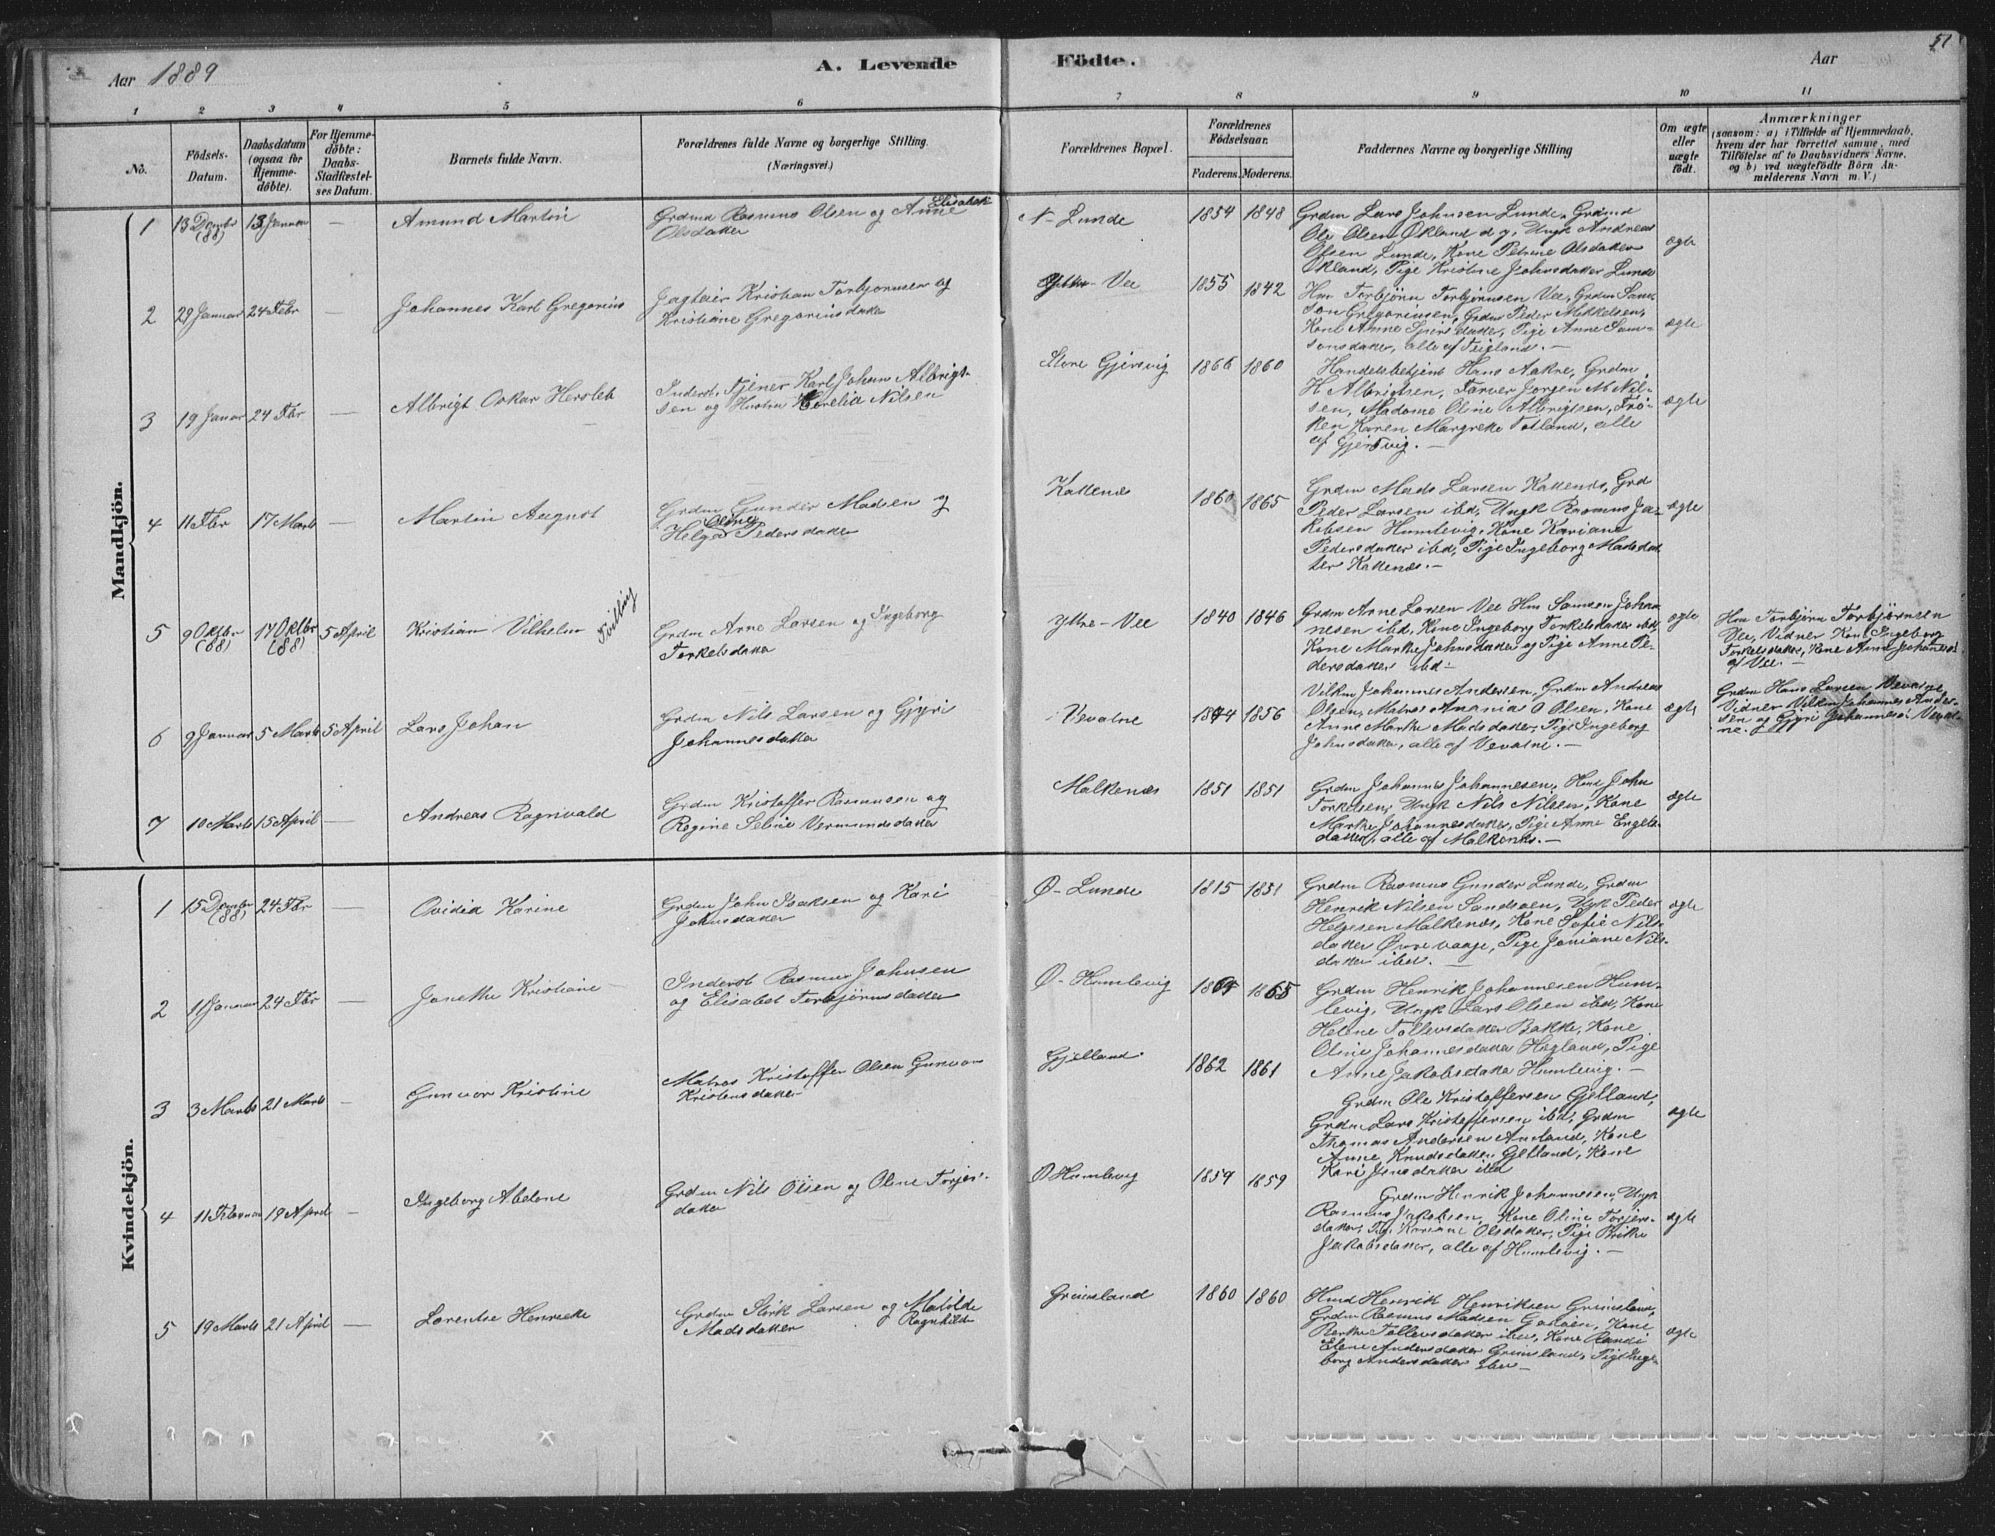 Aar 1889
A. Levende Födte.
Aar
51
1 2 3 4 5 6 7 8 9 10 11
No.
Födsels-Datum.
Daabsdatum (ogsaa for Hjemme-döbte).
For Hjemme-döbte: Daabs-Stadfæstel-ses Datum.
Barnets fulde Navn.
Forældrenes fulde Navne og borgerlige Stilling. (Næringsvei.)
Forældrenes Bopæl.
Forældrenes Födselsaar.
Faderens. Moderens.
Faddernes Navne og borgerlige Stilling
Om ægte eller uægte födt.
Anmærkninger
(saasom: a) i Tilfælde af Hjemmedaab, hvem der har forrettet samme, med Tilföielse af to Daabsvidners Navne, og b) ved uægtefödte Börn Anmelderens Navn m. V.)
Mandkjön.
1 13 Decmbr (88) 13 Januar — Amund Martin
Grdmd Rasmus Olsen og Anne Elisabet
Olsdatter
N- Lunde 1854 1848
Grdm Lars Johnsen Lunde, Grdmd
Ole Olsen Økland d y, Ungk Andreas
Olsen Lunde, Kone Petrine Olsdatter
Økland, Pige Kristine Johnsdatter Lunde
ægte
2 29 Januar 24 Febr — Johannes Karl Gregorius
Jagteier Kristian Torbjørnsen og
Kristiane Gregoriusdatter
Ytre- Vee 1855 1842
Hm Torbjørn Torbjørnsen Vee, Grdm Sam-
son Gregoriusen, Grdm Peder Mikkelsen,
Kone Anne Sjursdatter, Pige Anne Sam-
sonsdatter, alle af Teigland. —
ægte
3 19 Januar 24 Febr — Albrigt Oskar Hersleb
Inderst, Tjener Karl Johan Albrigt-
sen og Hustru Nilsen
Store Gjersvig 1866 1860
Handelsbetjent Hans Aakre, Grdm
H Albrigtsen, Farver Jørgen M Nil-
sen, Madame Oline Albrigtsen, Frø-
ken Karen Margrete Totland, alle
af Gjersvig. —
ægte
4 11 Febr 17 Marts — Martin August
Grdm Gunder Madsen og
Helga Oline Pedersdatter
Kattenæs 1860 1865
Grdm Mads Larsen Kattenæs, Grd
Peder Larsen ibd, Ungk Rasmus Ja-
kobsen Humlevig, Kone Kariane
Pedersdatter ibd, Pige Ingeborg Madsdat
ter Kattenæs. —
ægte
5 9 Oktbr (88) 17 Oktbr (88) 5 April Kristian Vilhelm Tvilling
Grdm Arne Larsen og Ingeborg
Torkelsdatter
Ytre- Vee 1840 1846
Grdm Arne Larsen Vee Hm Samson Johan
nesen ibd, Kone Ingeborg Torkelsdatter ibd,
Kone Marthe Johnsdatter og Pige Anne Pe-
dersdatter ibd —
ægte
Hm Torbjørn Torbjørnsen
Vee, Vidner Kone Ingeborg
Torkelsdatter, Kone Anne Johannesd
af Vee. —
6 9 Januar 5 Marts 5 April Lars Johan
Grdm Nils Larsen og Gjyri
Johannesdatter
Vevatne 1856
Johannes Andersen, Grdm Andreas
Olsen, Matros Anania O Olsen, Kone
Anne Marthe Madsdatter, Pige Ingeborg
Johnsdatter, alle af Vevatne. —
ægte
Grdm Hans Larsen Vevatne,
Vidner Johannes Ander-
sen og Gjyri Johannesd Vevat-
ne.
7 10 Marts 15 April — Andreas Ragnvald
Grdm Kristoffer Rasmusen og
Regine Seline Vermundsdatter
Malkenæs 1851 1851
Grdm Johannes Johannesen, Hmd John
Torkelsen, Ungk Nils Nilsen, Kone
Marthe Johannesdatter, Pige Anne Engels-
datter, alle af Malkenæs. —
ægte
Kvindekjön.
1 15 Decmbr (88) 24 Febr — Ovidia Karine
Grdm John Isaksen og Kari
Johnsdatter
Ø- Lunde 1815 1851
Grdm Rasmus Gunder Lunde, Grdm
Henrik Nilsen Sandsøen, Ungk Peder
Helgesen Malkenæs, Kone Sofie Nils-
datter vaage, Pige Janiane Nils-
datter ibd. —
ægte
2 11 Januar 24 Febr — Janethe Kristiane
Inderst Rasmus Johnsen
og Elisabet Torbjørnsdatter
Ø- Humlevig 1865
Grdm Henrik Johannesen Hum-
levig, Ungk Lars Olsen ibd, Kone
Helene Tollevsdatter Bakke, Kone
Oline Johannesdatter Høgland, Pige
Anne Jakobsdatter Humlevig. —
3 3 Marts 21 Marts — Gunvor Kristine
Matros Kristoffer Olsen Gunvor
Kristensdatter
Gjelland 1862 1861
Grdm Ole Kristoffersen Gjelland,
Grdm Lars Kristoffersen ibd, Grdm
Thomas Andersen Amland, Kone
Anne Knudsdatter Gjelland, Kone
Kari Jonsdatter ibd
ægte
4 11 Februar 19 April — Ingeborg Abelone
Grdm Nils Olsen og Oline Torjers-
datter
Ø Humlevig 1859 1859
Grdm Henrik Johannesen, Ungk
Rasmus Jakobsen, Kone Oline Torjers-
datter, Pig. Kariane Olsdatter, Pige Brithe
Jakobsdatter, alle af Humlevig. —
ægte
5 19 Marts 21 April — Lorentse Henriette
Grdm Størk Larsen og Matilde Ragnhilde
Madsdatter
Grimsland 1860 1860
Hmd Henrik Henriksen Grimsland,
Grdm Rasmus Madsen Gasøen, Kone
Berthe Tollevsdatter ibd, Kone Randi
Elene Andersdatter Grimsland, Pige Inge-
borg Andersdatter ibd —
ægte